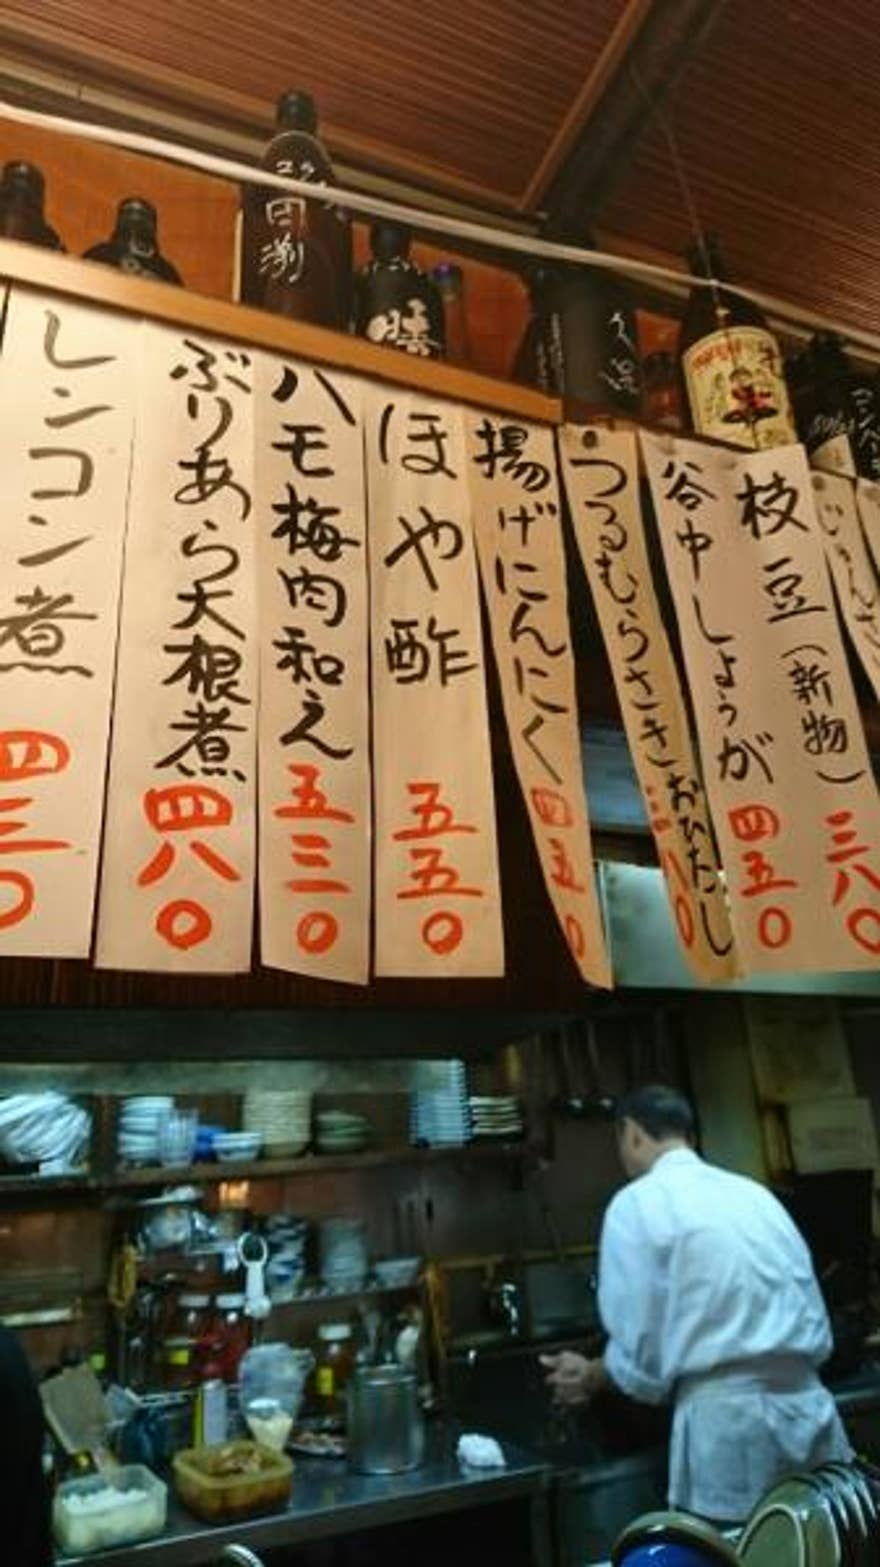 枝豆(新物)
三八〇
谷中しょうが
四五〇
つるむらさきおひたし
三八〇
揚げにんにく
四五〇
ほや酢
五五〇
ハモ梅肉和え
五三〇
ぶりあら大根煮
四八〇
レンコン煮
四三〇